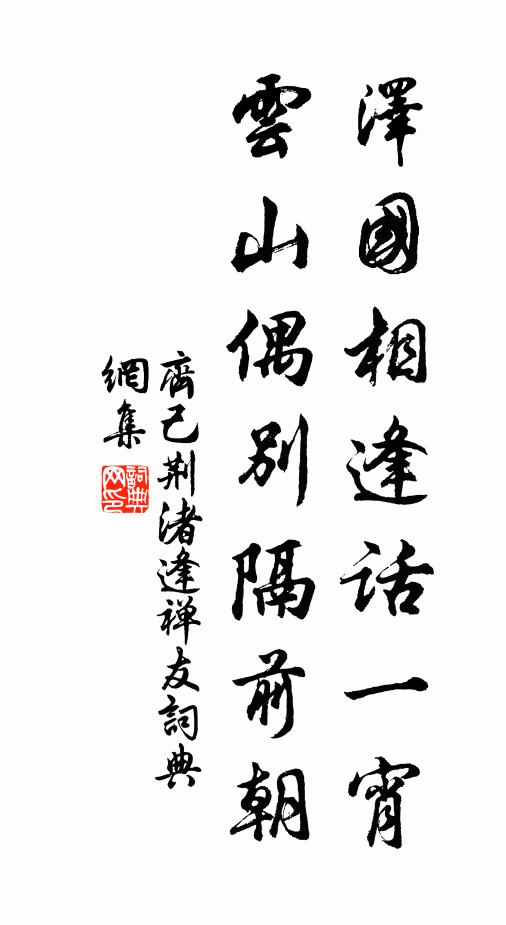 澤國相逢話一宵
雲山偶別隔前朝
齊己荆渚逢禅友詞典
網集
詞典
网印